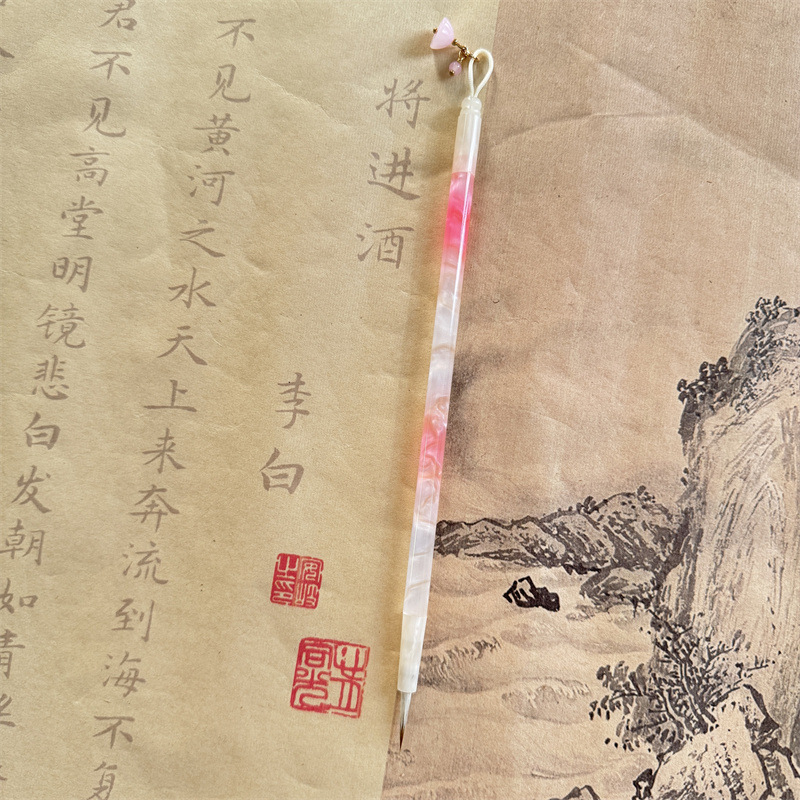 将进酒
李白
不见黄河之水天上来奔流到海不复
君不见高堂明镜悲白发朝如青丝